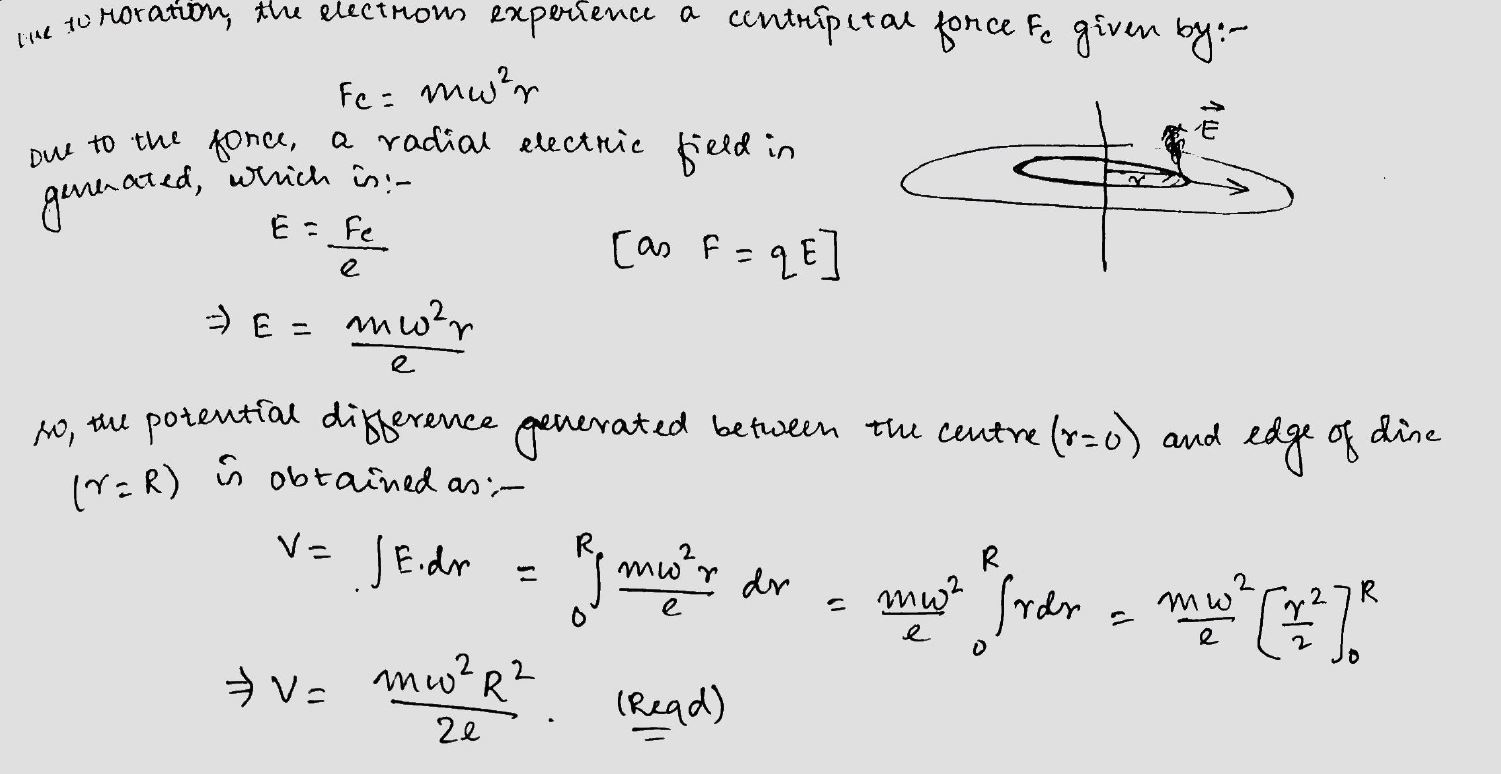 due to rotation, the electrons experience a centripetal force Fc given by:-
Fc = mω²r
Due to the force, a radial electric field is
generated, which is:-
E = Fc/e [as F = qE]
⇒ E = mω²r/e
E
r
so, the potential difference generated between the centre (r=0) and edge of disc
(r=R) is obtained as:-
V = ∫E.dr = ∫₀ᴿ mω²r/e dr = mω²/e ∫₀ᴿ rdr = mω²/e [r²/2]₀ᴿ
⇒ V = mω²R²/2e. (Reqd)